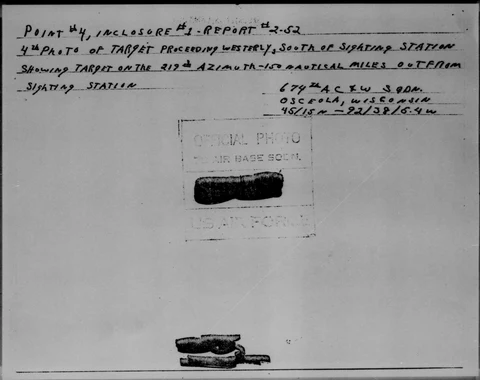 POINT #4, INCLOSURE #1 - REPORT #2-52
4th PHOTO OF TARGET PROCEEDING WESTERLY, SOUTH OF SIGHTING STATION
SHOWING TARGET ON THE 219th AZIMUTH - 150 NAUTICAL MILES OUT FROM
SIGHTING STATION
674th AC & W SQDN.
OSCEOLA, WISCONSIN
45/15N - 92/38/6.4W
OFFICIAL PHOTO
AIR BASE SQDN.
US AIR FORCE